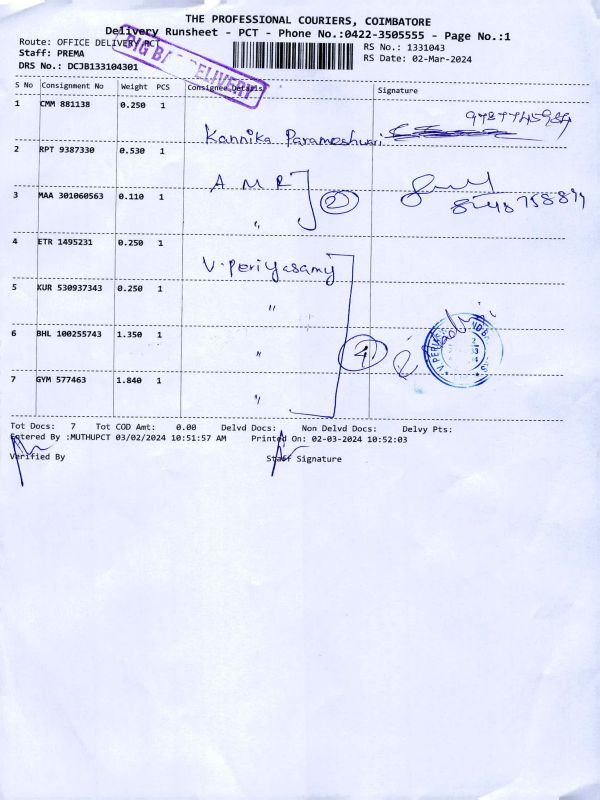 THE PROFESSIONAL COURIERS, COIMBATORE
Delivery Runsheet - PCT - Phone No.:0422-3505555 - Page No.:1
Route: OFFICE DELIVERY PCT
RS No.: 1331043
Staff: PREMA
RS Date: 02-Mar-2024
DRS No.: DCJB133104301
BIG BAG DELIVERY
S No Consignment No Weight PCS Consignee Details Signature
1 CMM 881138 0.250 1
Kannika Parameshwari
2 RPT 9387330 0.530 1
A M R
3 MAA 301060563 0.110 1
" 2
4 ETR 1495231 0.250 1
V. Periyasamy
5 KUR 530937343 0.250 1
"
6 BHL 100255743 1.350 1
" 4
7 GYM 577463 1.840 1
"
Tot Docs: 7 Tot COD Amt: 0.00 Delvd Docs: Non Delvd Docs: Delvy Pts:
Entered By :MUTHUPCT 03/02/2024 10:51:57 AM Printed On: 02-03-2024 10:52:03
Verified By Staff Signature